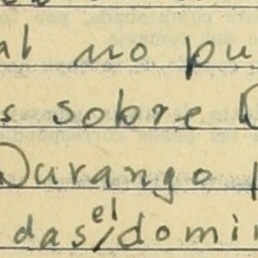 al no pu
s sobre
Durango
das el domin